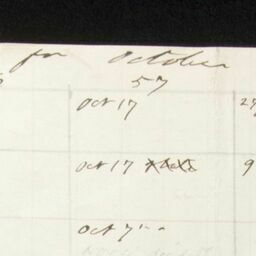 for October
57
Oct 17 27
Oct 17 9
Oct 7